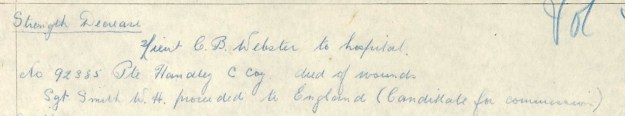 Strength Decrease
Lieut C.B. Webster to hospital.
No 92385 Pte Handley C Coy died of wounds
Sgt Smith W.H. proceeded to England (Candidate for commission)